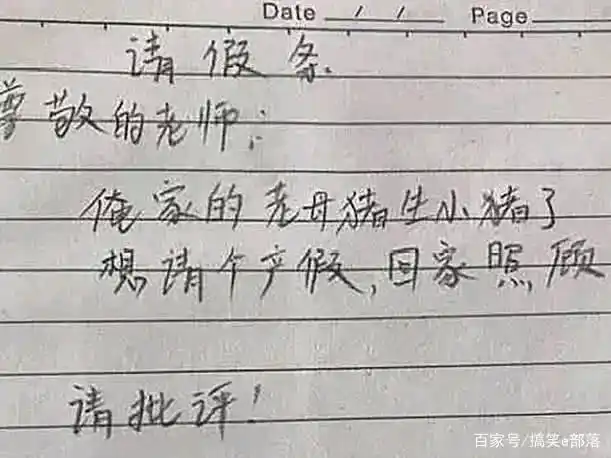 Date / / Page
请假条
尊敬的老师:
俺家的老母猪生小猪了
想请个产假,回家照顾
请批评!
百家号/搞笑e部落